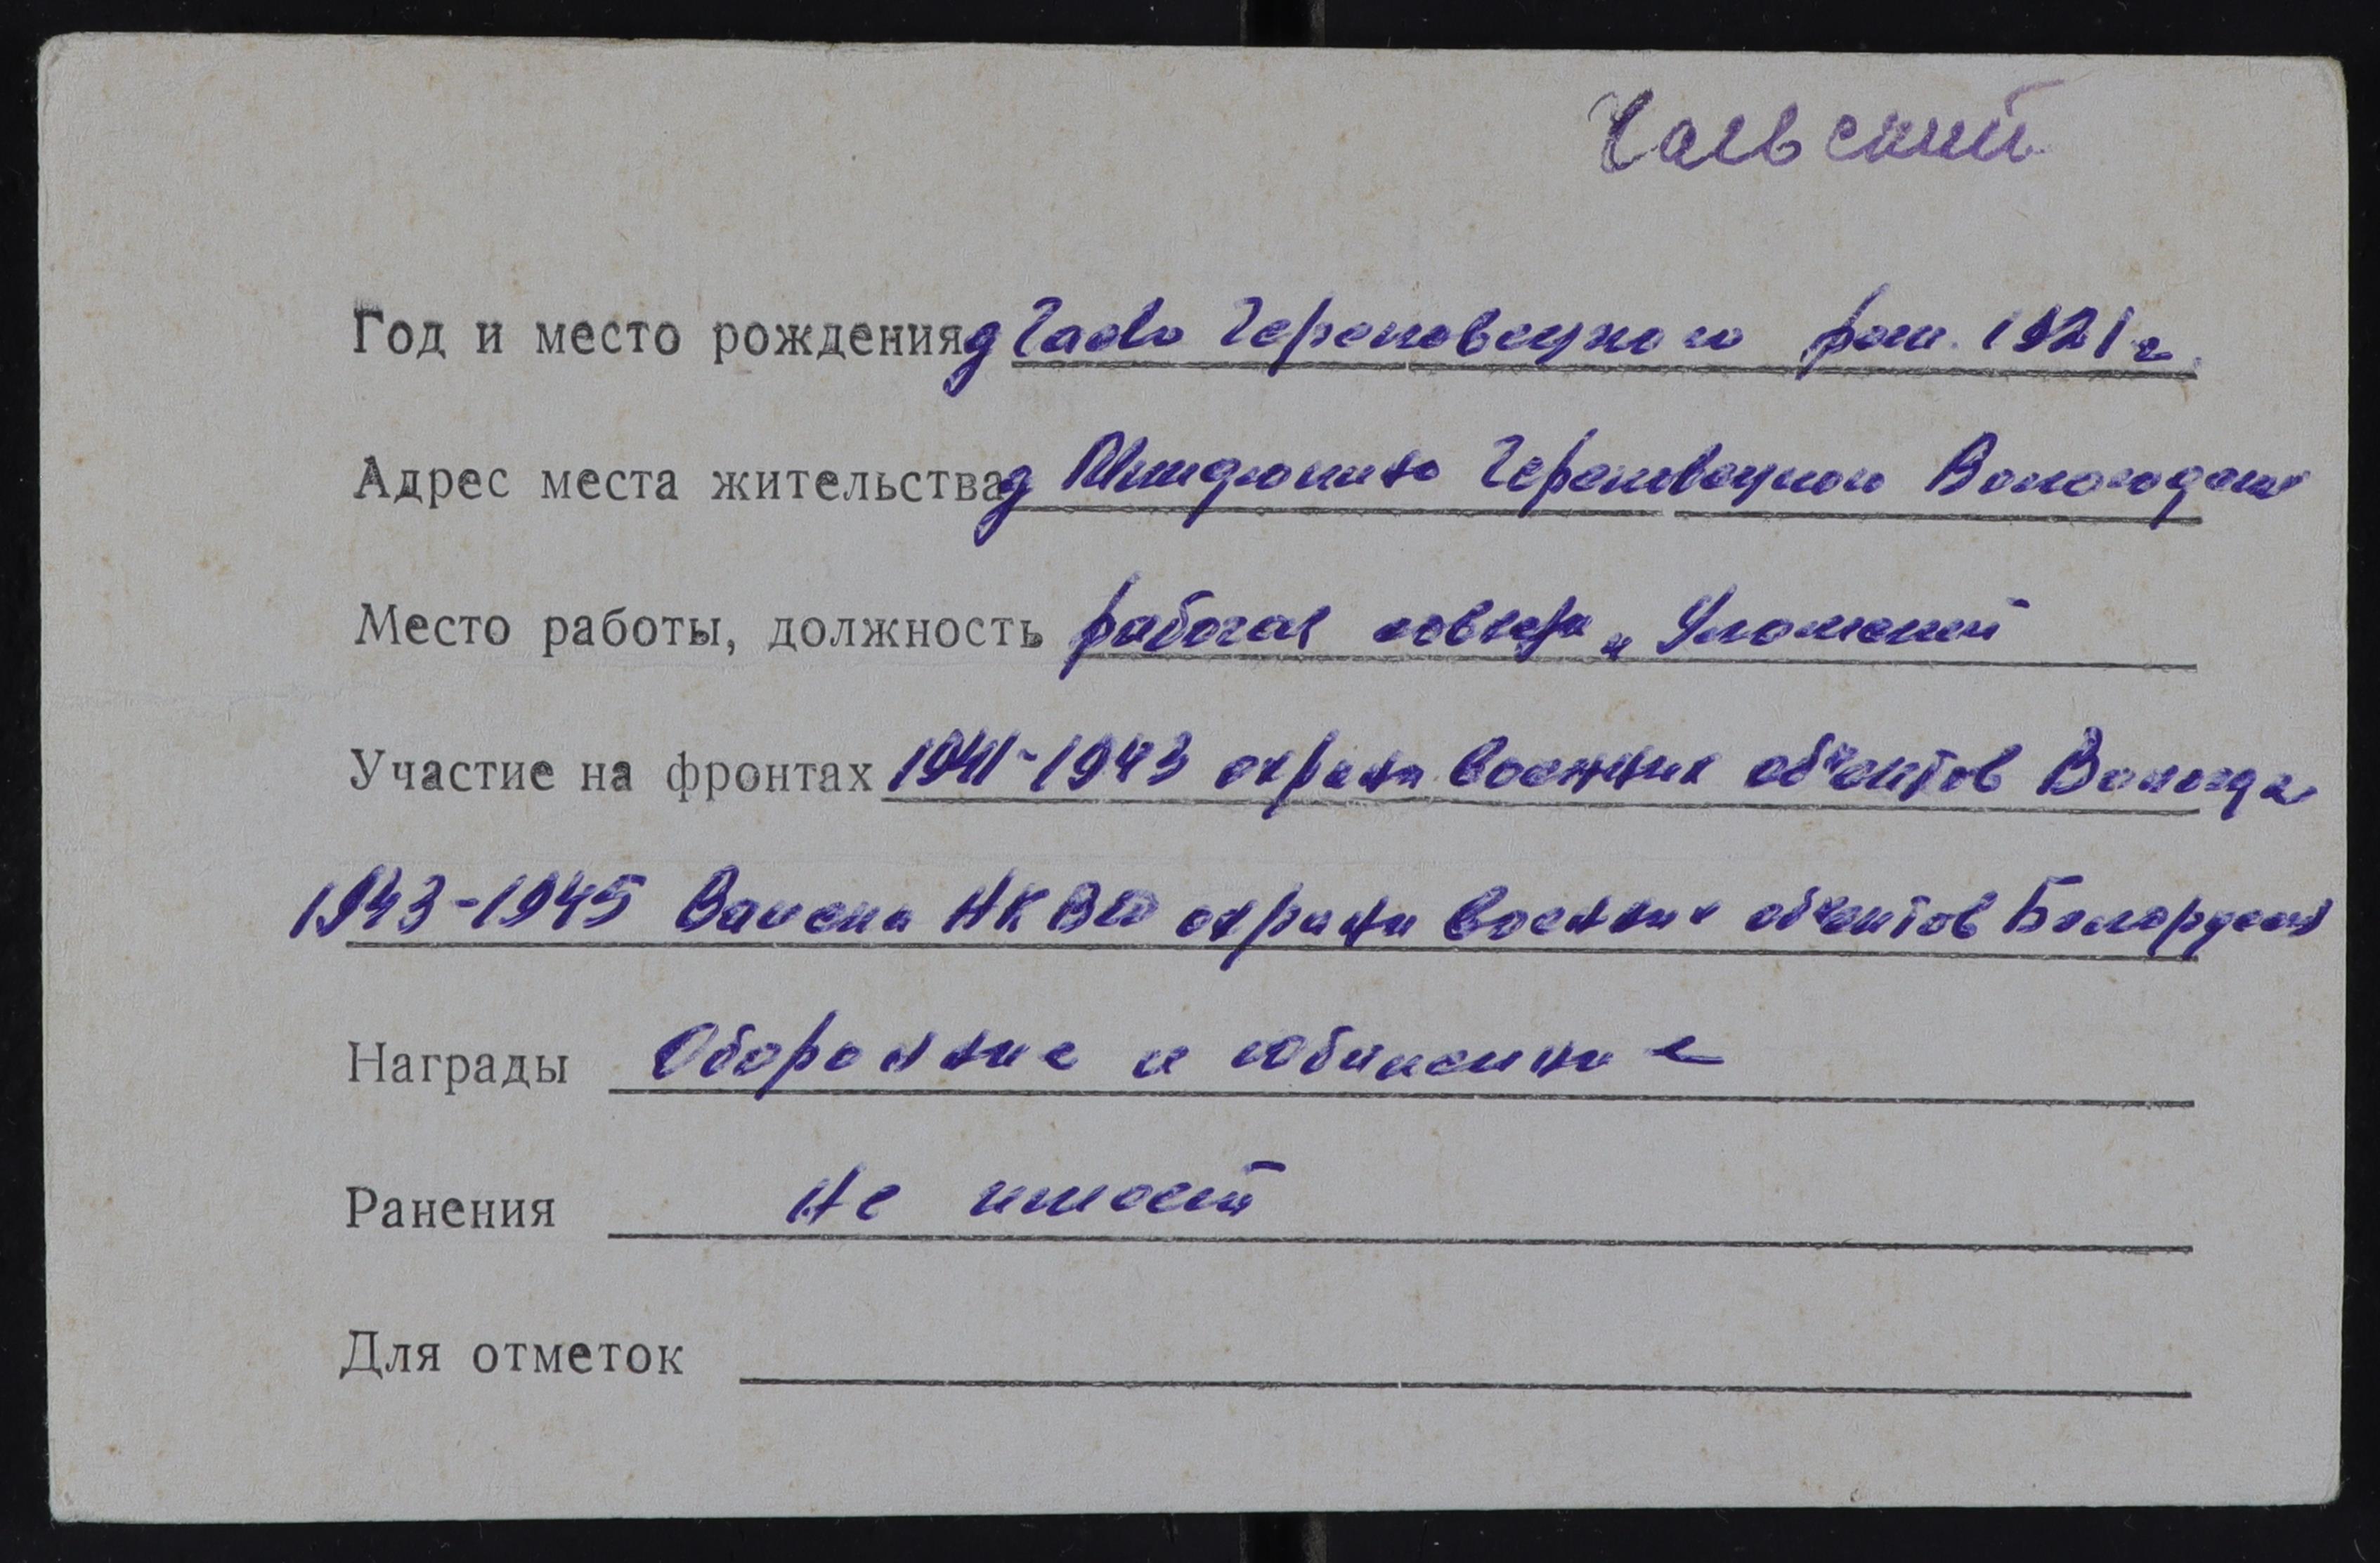 Чаевский
Год и место рождения д Чаево Череповецкого рай. 1921 г.
Адрес места жительства д Череповецкого Вологодской
Место работы, должность рабочая совхоза „Уломский
Участие на фронтах 1941-1943 охрана военных об'ектов Вологда
1943-1945 Войска НКВД охраны военных об'ектов
Награды Оборонные и юбилейные
Ранения Не имеет
Для отметок